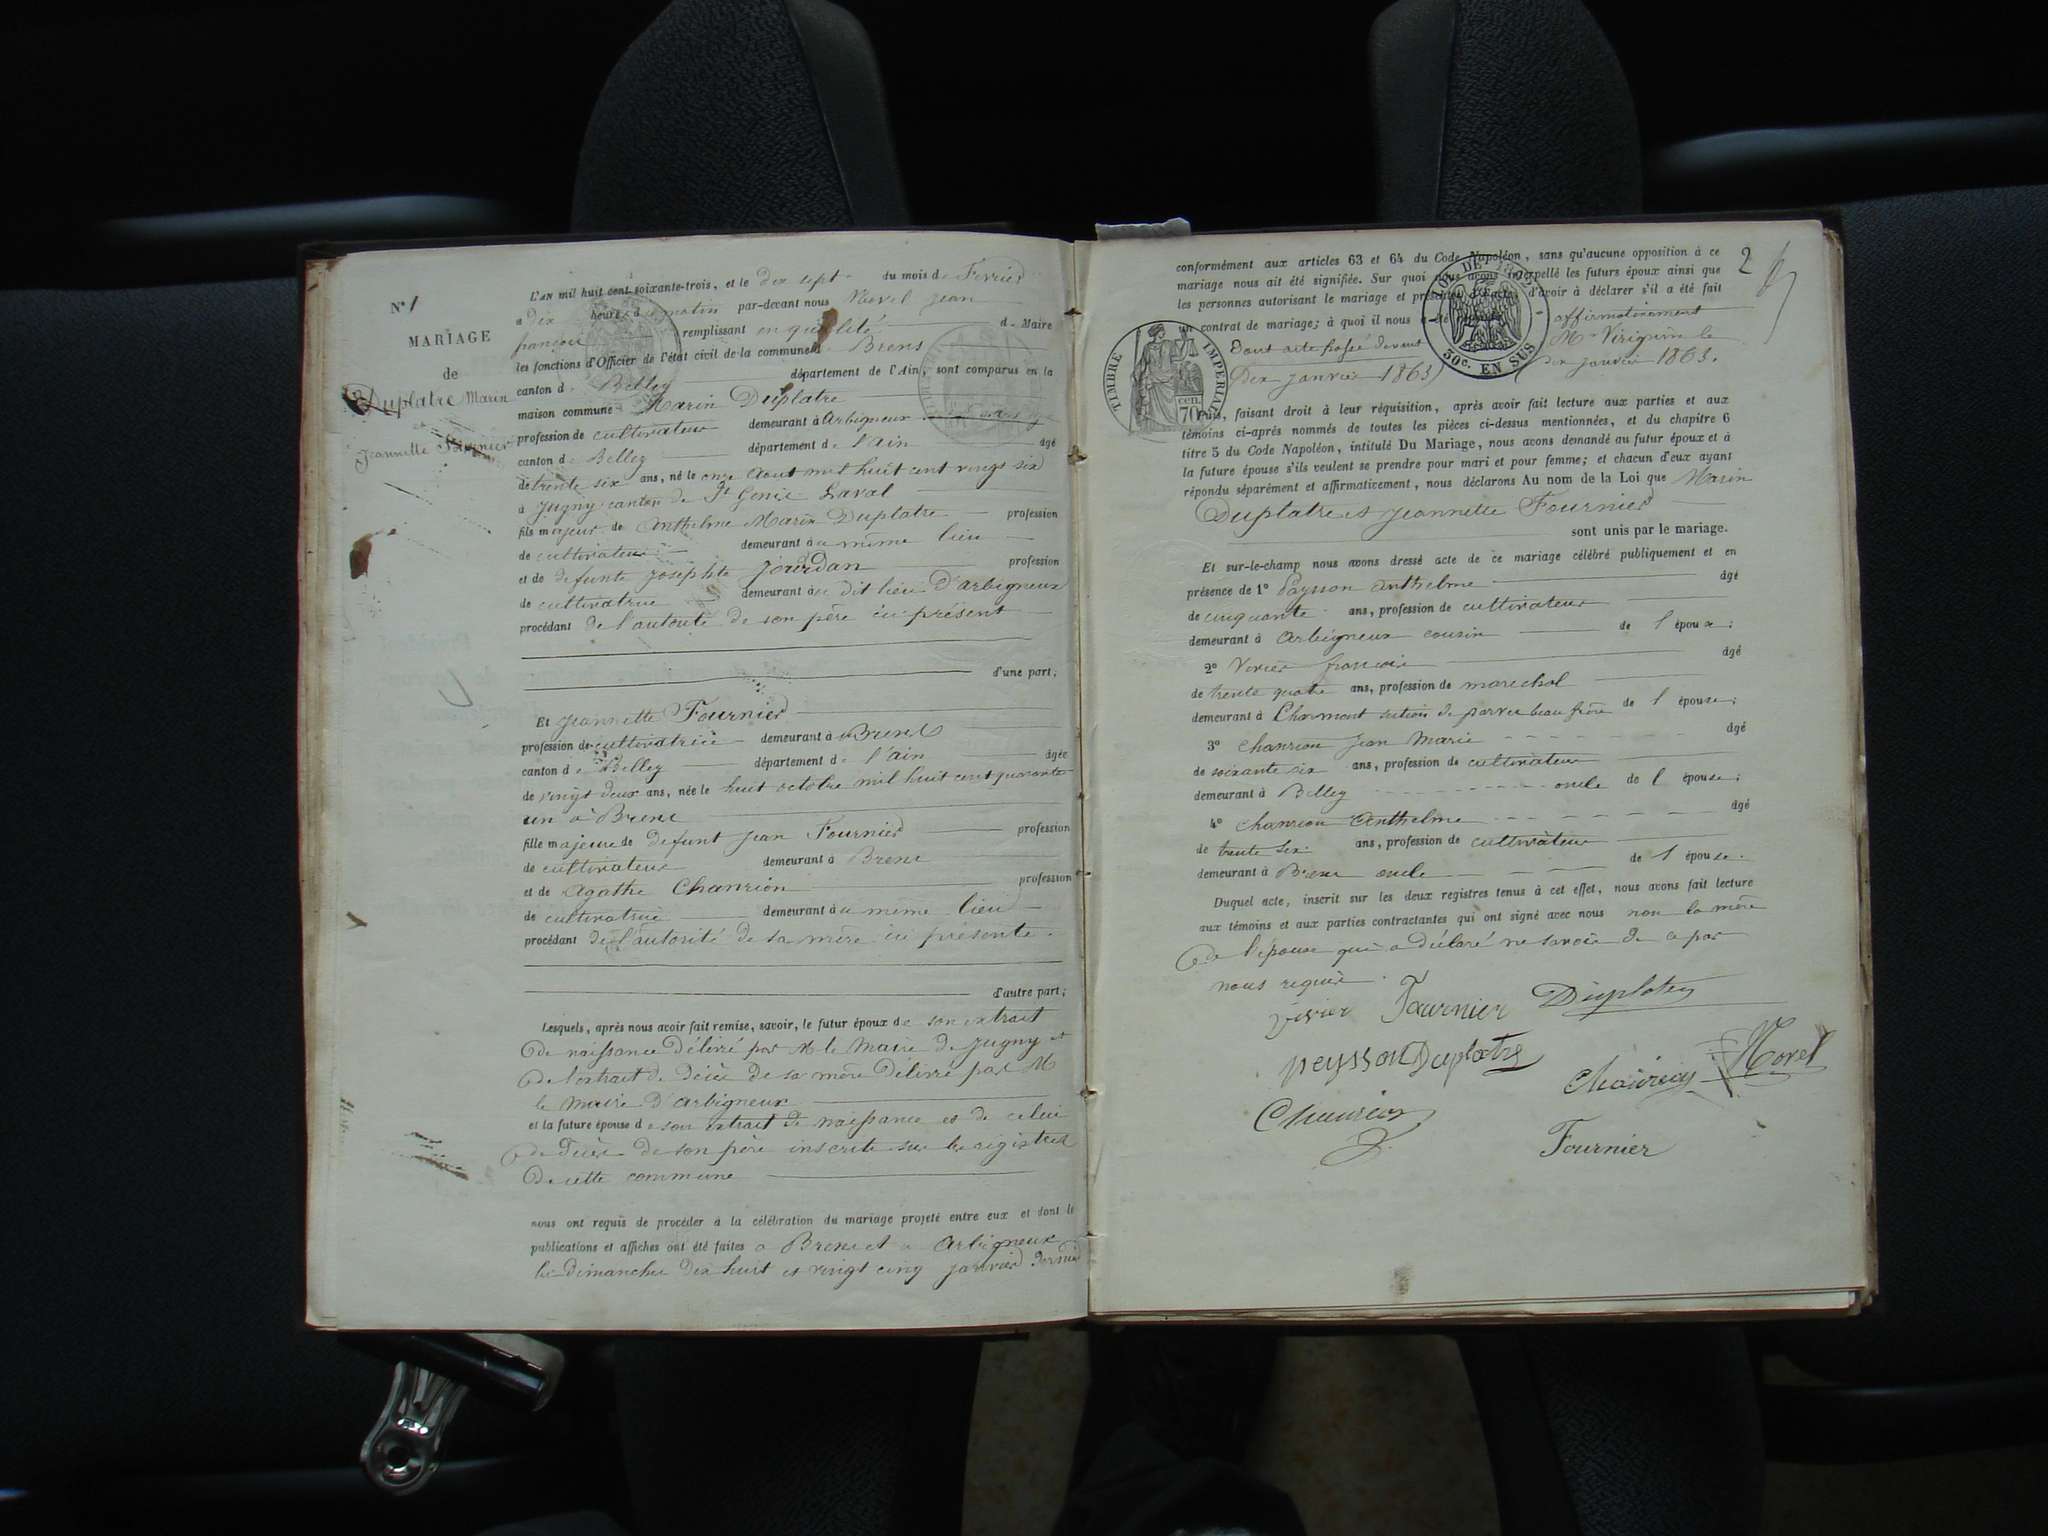 N° 1
MARIAGE
de
Duplatre Marin
Jeannette Fournier
L'AN mil huit cent soixante-trois, et le dix sept du mois de Fevrier
a dix heures du matin par-devant nous Morel Jean
françois remplissant en qualité de Maire
les fonctions d'Officier de l'état civil de la commune de Brens
canton de Belley département de l'Ain, sont comparus en la
maison commune Marin Duplatre
profession de cultivateur demeurant à Arbigneux
canton de Belley département de l'ain âgé
de trente six ans, né le onze Aout mil huit cent vingt six
à Jugny canton de St Genis Laval
fils majeur de Anthelme Marin Duplatre profession
de cultivateur demeurant au même lieu
et de defunte Josephte Jourdan profession
de cultivatrice demeurant au dit lieu D'arbigneux
procédant de l'autorité de son père ici présent
d'une part;
Et Jeannette Fournier
profession de cultivatrice demeurant à Brens
canton de Belley département de l'ain âgée
de vingt deux ans, née le huit octobre mil huit cent quarante
un à Brens
fille majeure de defunt Jean Fournier profession
de cultivateur demeurant à Brens
et de Agathe Chanrion profession
de cultivatrice demeurant au même lieu
procédant de l'autorité de sa mère ici présente
d'autre part;
Lesquels, après nous avoir fait remise, savoir, le futur époux de son extrait
de naissance délivré par M le Maire de Jugny et
de l'extrait de décès de sa mère délivré par M
le Maire D'arbigneux
et la future épouse de son extrait de naissance et de celui
de décès de son père inscrits sur les registres
de cette commune
nous ont requis de procéder à la célébration du mariage projeté entre eux et dont les
publications et affiches ont été faites a Brens et a Arbigneux
les dimanches dix huit et vingt cinq janvier dernier
2
conformément aux articles 63 et 64 du Code Napoléon, sans qu'aucune opposition à ce
mariage nous ait été signifiée. Sur quoi nous avons interpellé les futurs époux ainsi que
les personnes autorisant le mariage et présentes à l'acte, d'avoir à déclarer s'il a été fait
un contrat de mariage; à quoi il nous a été répondu affirmativement
Dont acte passé devant Me Virignin le
(dix janvier 1863) (dix janvier 1863.
LOI DE 1862
50c. EN SUS
TIMBRE IMPERIAL
70 cen.
Puis, faisant droit à leur réquisition, après avoir fait lecture aux parties et aux
témoins ci-après nommés de toutes les pièces ci-dessus mentionnées, et du chapitre 6
titre 5 du Code Napoléon, intitulé Du Mariage, nous avons demandé au futur époux et à
la future épouse s'ils veulent se prendre pour mari et pour femme; et chacun d'eux ayant
répondu séparément et affirmativement, nous déclarons Au nom de la Loi que Marin
Duplatre et Jeannette Fournier
sont unis par le mariage.
Et sur-le-champ nous avons dressé acte de ce mariage célébré publiquement et en
présence de 1° Peysson Anthelme âgé
de cinquante ans, profession de cultivateur
demeurant à Arbigneux cousin de l'époux;
2° Vivier françois âgé
de trente quatre ans, profession de marechal
demeurant à Charmont section de parves beau frère de l'épouse;
3° Chanrion Jean Marie âgé
de soixante six ans, profession de cultivateur
demeurant à Belley oncle de l'épouse;
4° Chanrion Anthelme âgé
de trente six ans, profession de cultivateur
demeurant à Brens oncle de l'épouse.
Duquel acte, inscrit sur les deux registres tenus à cet effet, nous avons fait lecture
aux témoins et aux parties contractantes qui ont signé avec nous non la mère
de l'épouse qui a déclaré ne savoir de ce par
nous requise.
Vivier Fournier Duplatre
peysson Duplatre
Chanrion Morel
Chanrion
Fournier